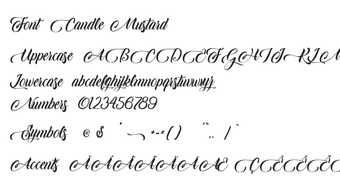 Font Candle Mustard
Uppercase ABCCDEFGHIJKLM
Lowercase abcdefghijklmnopqrstuvwxyz
Numbers 0123456789
Symbols @ $ " ~ +-=() "".. /
Accents ÀÁÂÃÄÅÆ ÇÈÉÊË